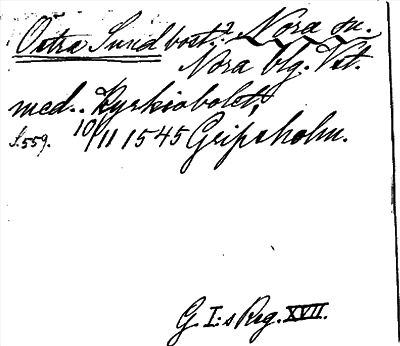 Östra Sund bost.? Nora sn.
Nora blg. Vst.
med. Kyrkiobolet,
s. 559. 10/11 1545 Gripsholm.
G. I:s Reg. XVII.